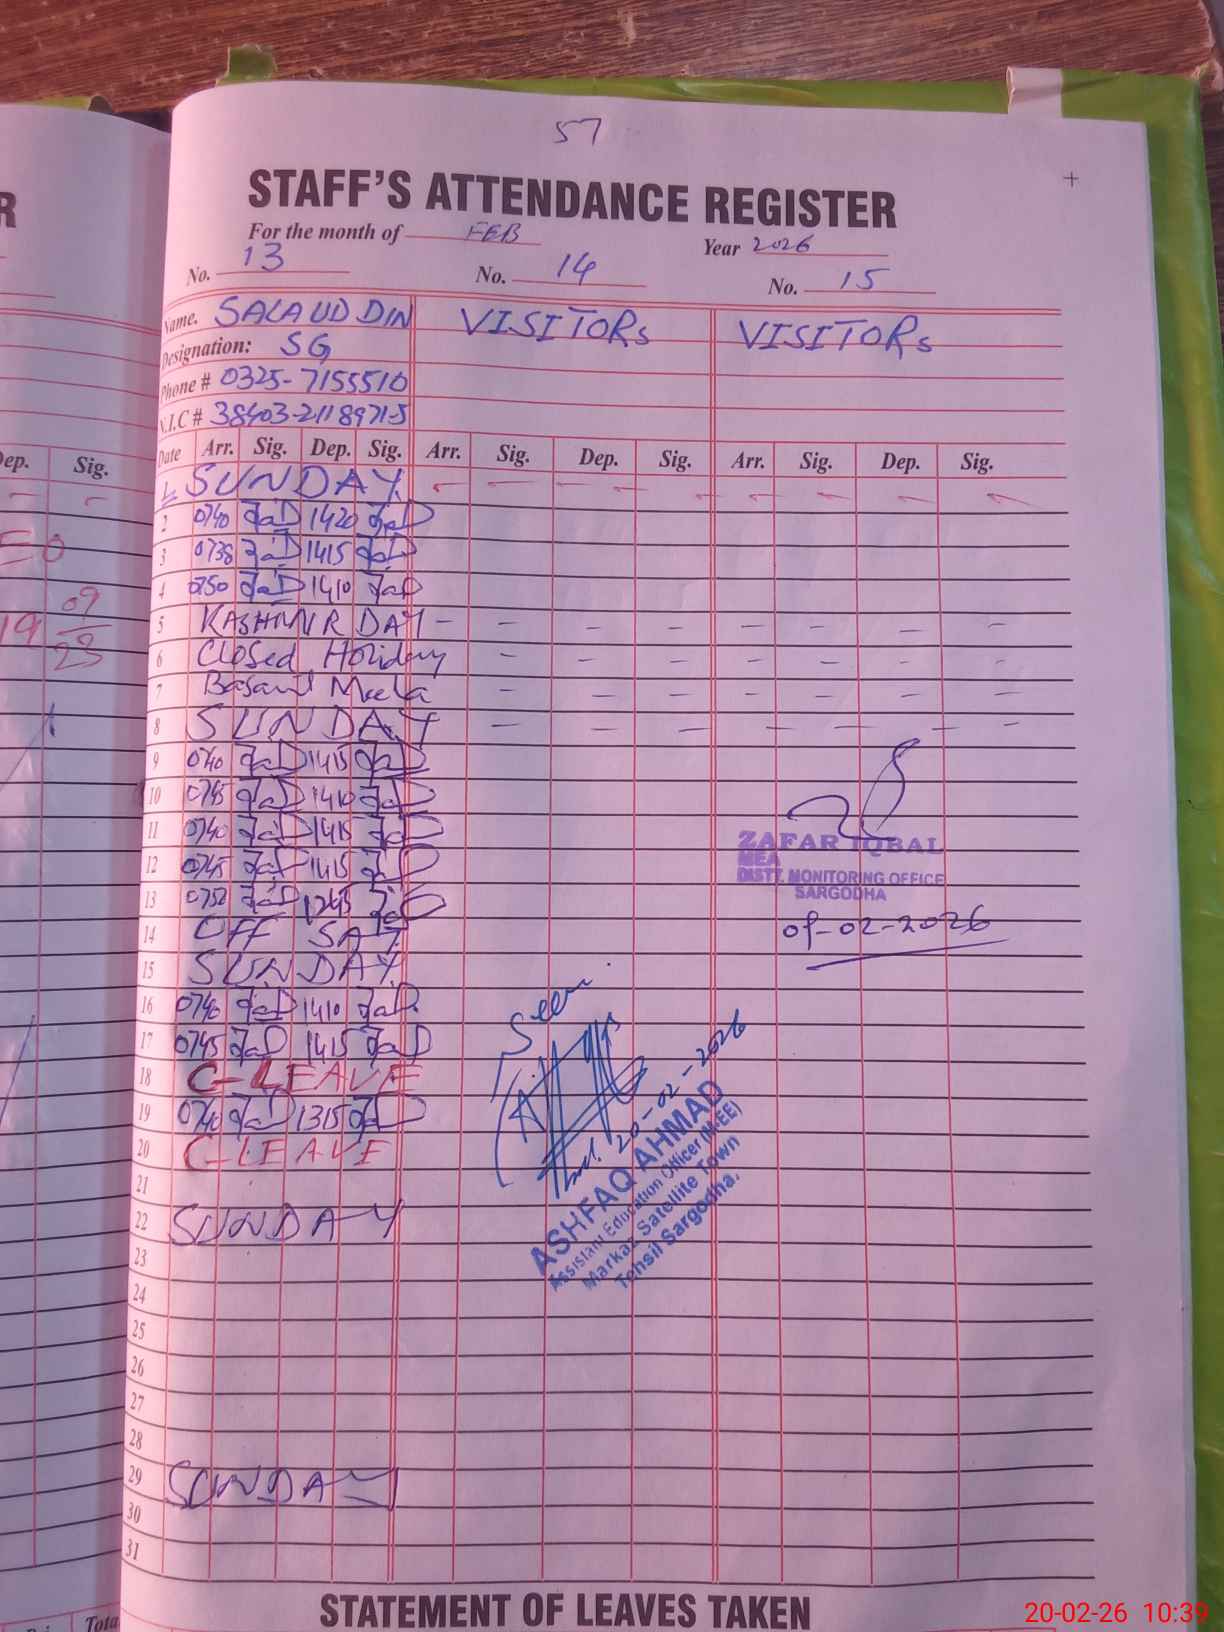 57
STAFF'S ATTENDANCE REGISTER
For the month of FEB Year 2026
No. 13 No. 14 No. 15
Name. SALAUDDIN VISITORs VISITORs
Designation: SG
Phone # 0325-7155510
N.I.C # 38403-2118971-5
Date Arr. Sig. Dep. Sig. Arr. Sig. Dep. Sig. Arr. Sig. Dep. Sig.
1 SUNDAY
2 0740 1420
3 0738 1415
4 0750 1410
5 KASHMIR DAY - - - - - - -
6 Closed Holiday - - - - - -
7 Basant Meela - - - - - -
8 SUNDAY - - - - - - -
9 0740 1415
10 0745 1410
11 0740 1415
12 0745 1415
13 1245
14 OFF SAT
15 SUNDAY
16 0740 1410
17 0745 1415
18 C-LEAVE
19 0740 1315
20 C-LEAVE
21
22 SUNDAY
23
24
25
26
27
28
29 SUNDAY
30
31
ZAFAR IQBAL
MEA
DISTT. MONITORING OFFICE
SARGODHA
09-02-2026
Seen
20-02-2026
ASHFAQ AHMAD
Assistant Education Officer (M-EE)
Markaz Satellite Town
Tehsil Sargodha.
STATEMENT OF LEAVES TAKEN
R
Dep. Sig.
EO
19 09
23
Tota
20-02-26 10:39